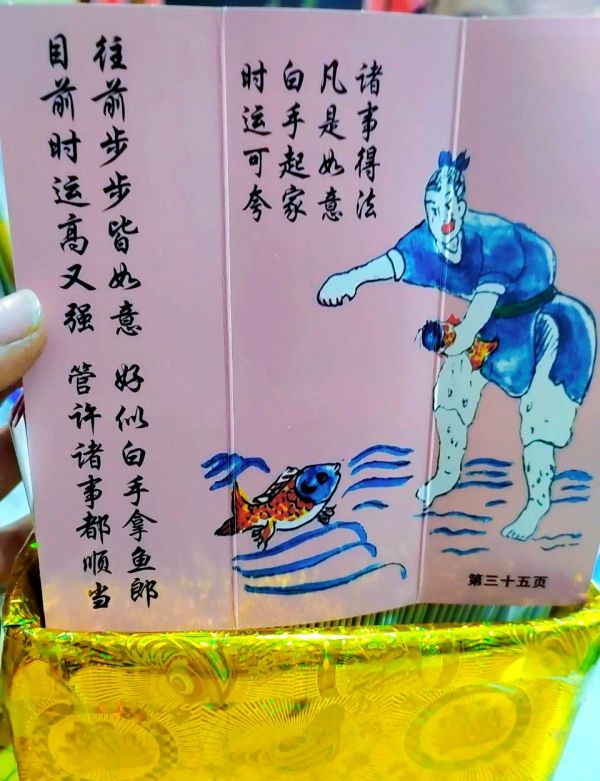 诸事得法
凡是如意
白手起家
时运可夸
往前步步皆如意 好似白手拿鱼郎
目前时运高又强 管许诸事都顺当
第三十五页